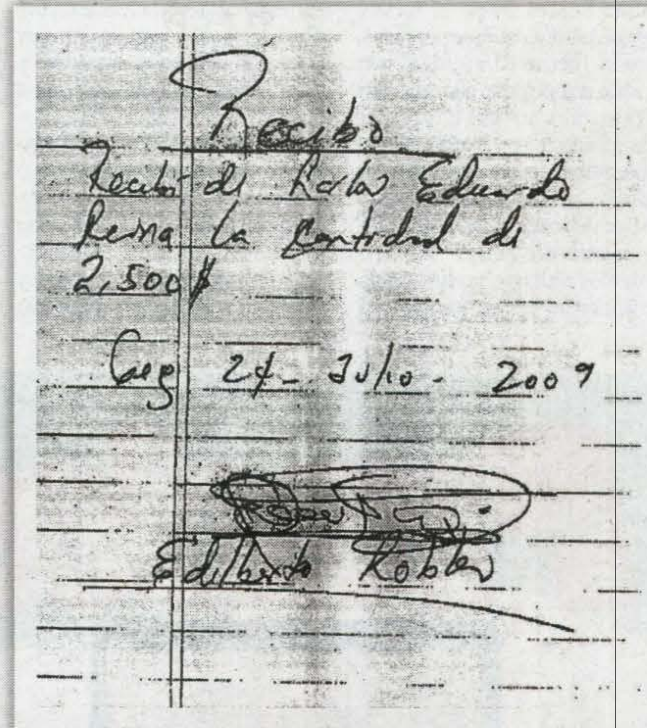 Recibo
Recibi de Karlos Eduardo
Reina la Cantidad de
2,500 $
Teg 24 - Julio - 2009
Edilberto Robles